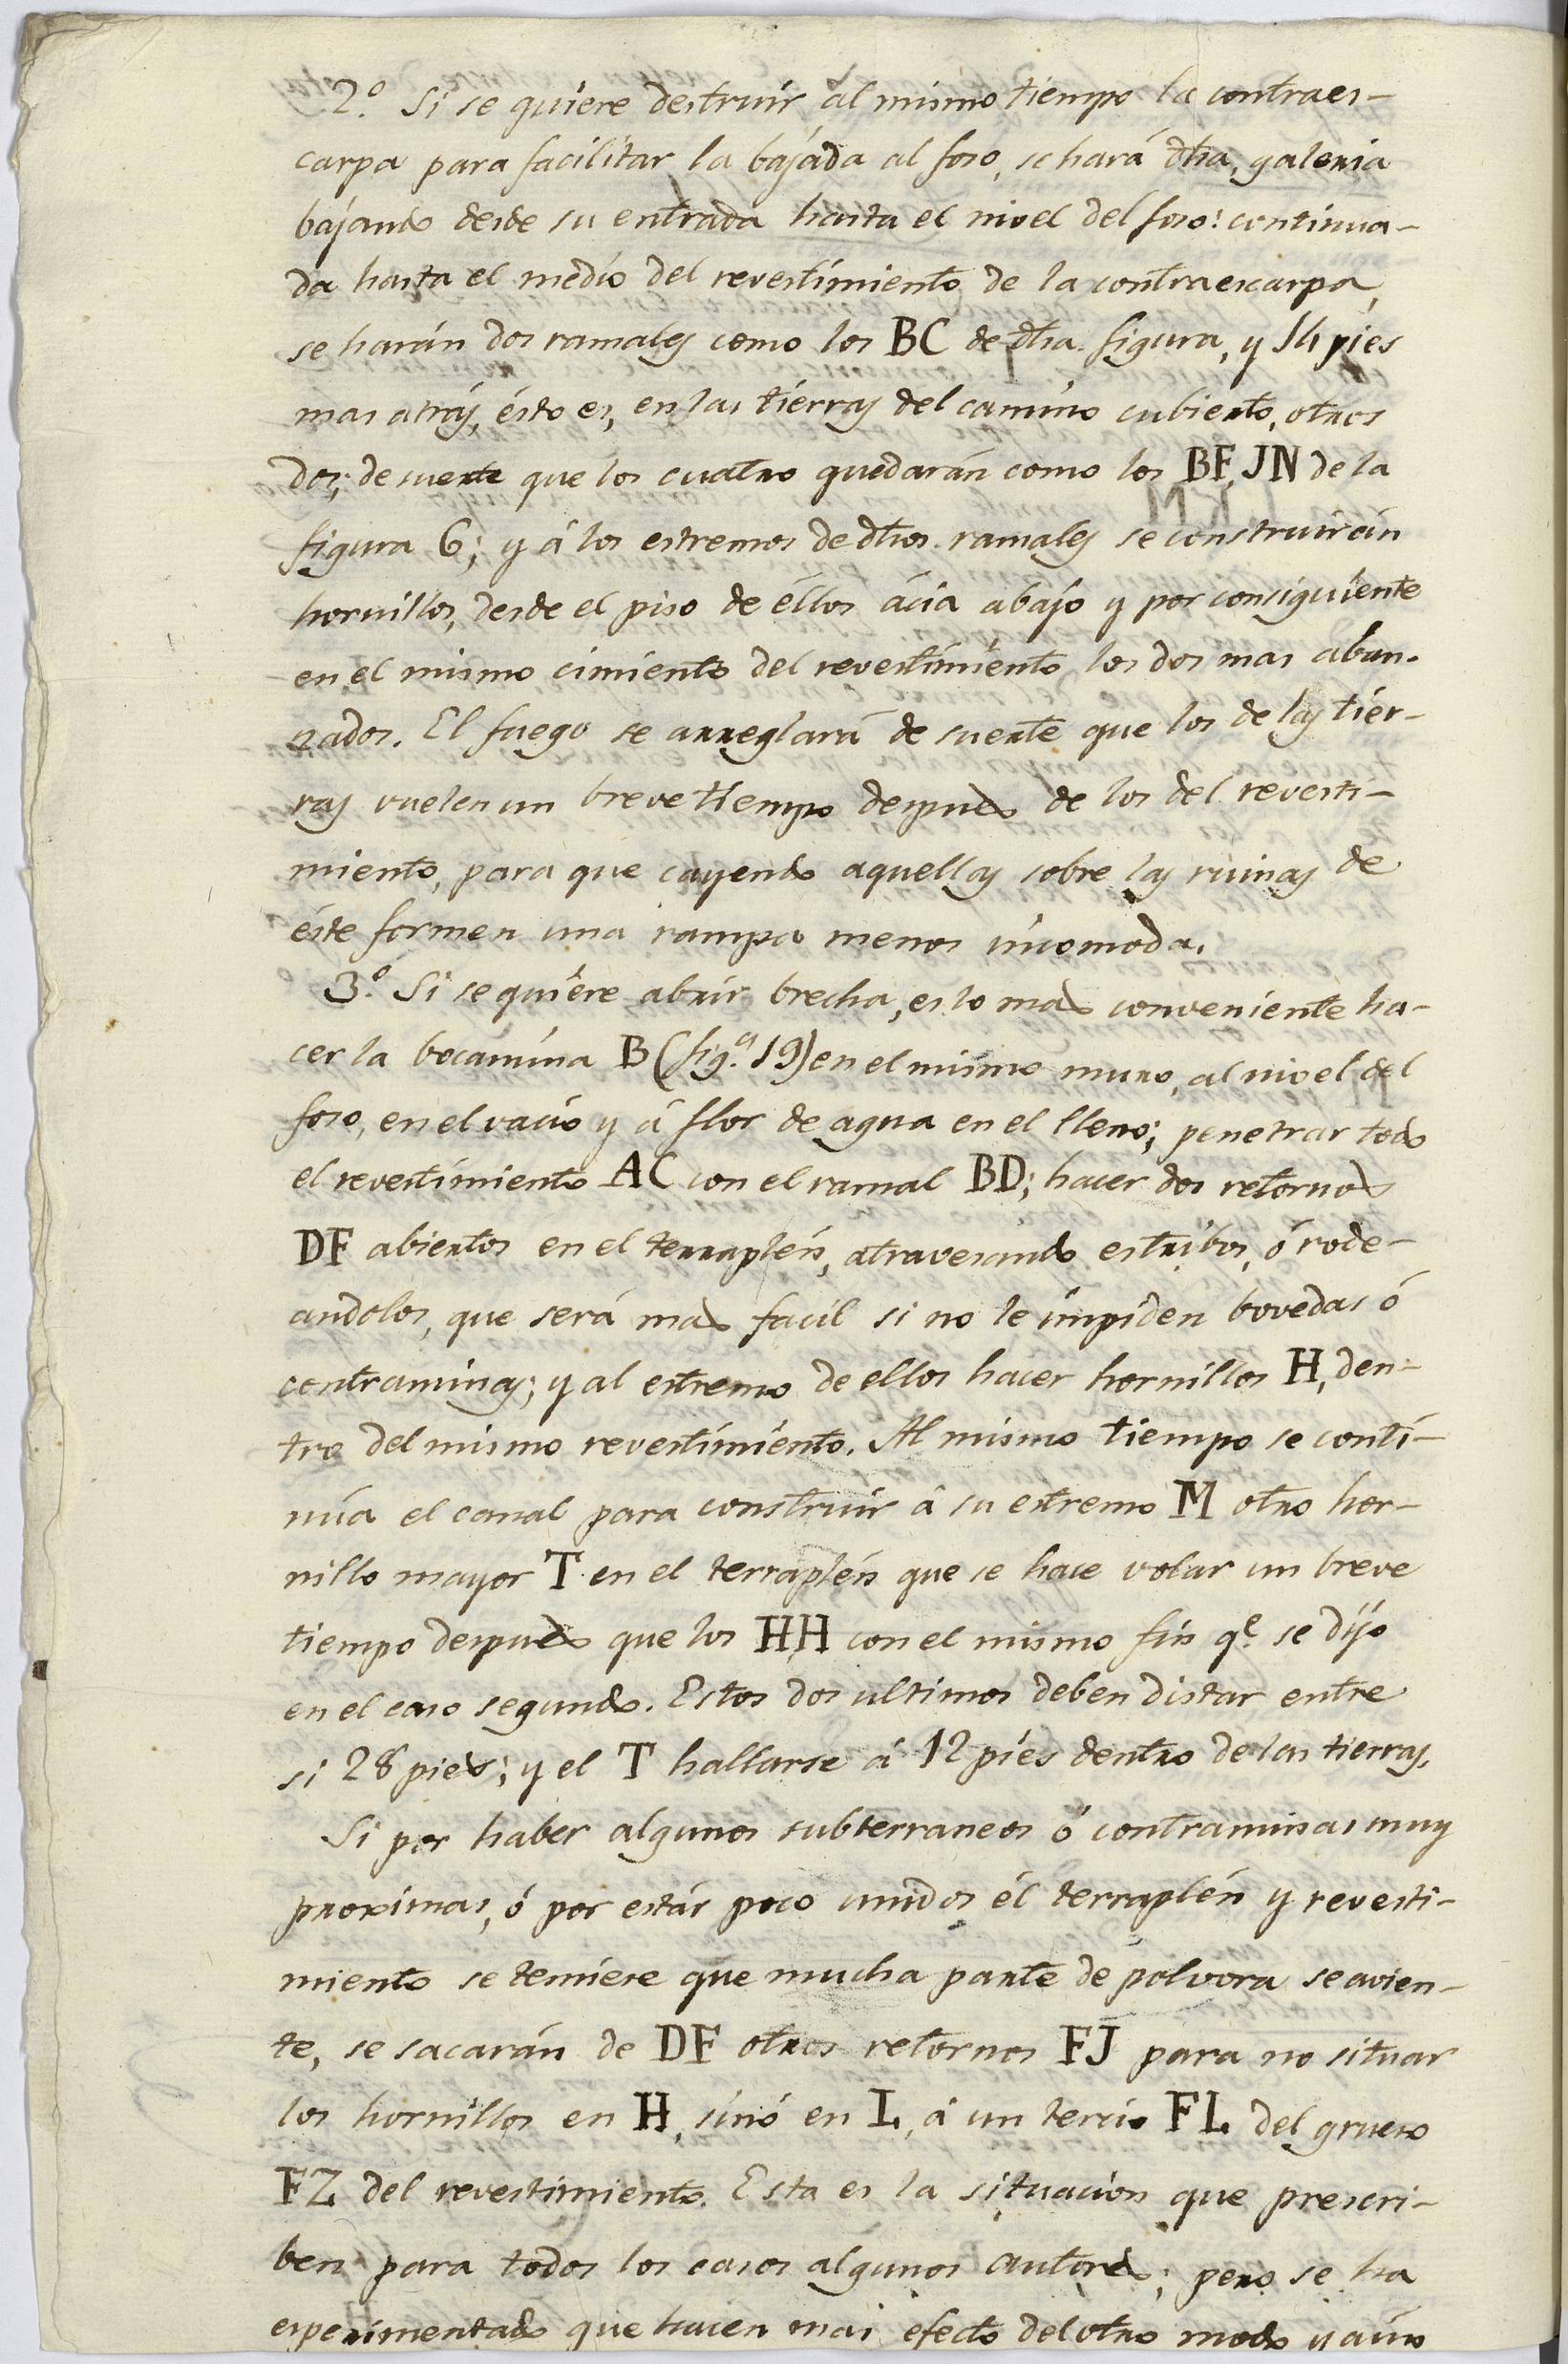 2.º Si se quiere destruir al mismo tiempo la contraes-
carpa para facilitar la bajada al foso, se hará dha. galeria
bajando desde su entrada hasta el nivel del foso: continua-
da hasta el medio del revestimiento de la contraescarpa,
se harán dos ramales como los BC de dha. figura, y 14 pies
mas atrás, ésto es, en las tierras del camino cubierto, otros
dos; de suerte que los cuatro quedarán como los BF, JN de la
figura 6; y á los estremos de dhos. ramales se construirán
hornillos, desde el piso de éllos ácia abajo y por consiguiente
en el mismo cimiento del revestimiento los dos mas aban-
zados. El fuego se arreglará de suerte que los de las tier-
ras vuelen un breve tiempo despues de los del revesti-
miento, para que cayendo aquellas sobre las ruinas de
éste formen una rampa menos incomoda.
3.º Si se quiere abrir brecha, es lo mas conveniente ha-
cer la bocamina B (fig.ª 19) en el mismo muro, al nivel del
foso, en el vacio y á flor de agua en el lleno; penetrar todo
el revestimiento AC con el ramal BD; hacer dos retornos
DF abiertos en el terraplén, atravesando estribos, ó rode-
andolos, que será mas facil si no le impiden bovedas ó
contraminas; y al estremo de ellos hacer hornillos H, den-
tro del mismo revestimiento. Al mismo tiempo se conti-
núa el canal para construir á su estremo M otro hor-
nillo mayor T en el terraplén que se hace volar un breve
tiempo despues que los HH con el mismo fin q.e se dijo
en el caso segundo. Estos dos ultimos deben distar entre
si 28 pies; y el T hallarse á 12 pies dentro de las tierras.
Si por haber algunos subterraneos ó contraminas muy
proximas, ó por estár poco unidos él terraplén y revesti-
miento se temiese que mucha parte de polvora se avien-
te, se sacarán de DF otros retornos FJ para no situar
los hornillos en H, sinó en L, á un tercio FL del grueso
FZ del revestimiento. Esta es la situacion que prescri-
ben para todos los casos algunos autores; pero se ha
esperimentado que hacen mas efecto del otro modo y aun